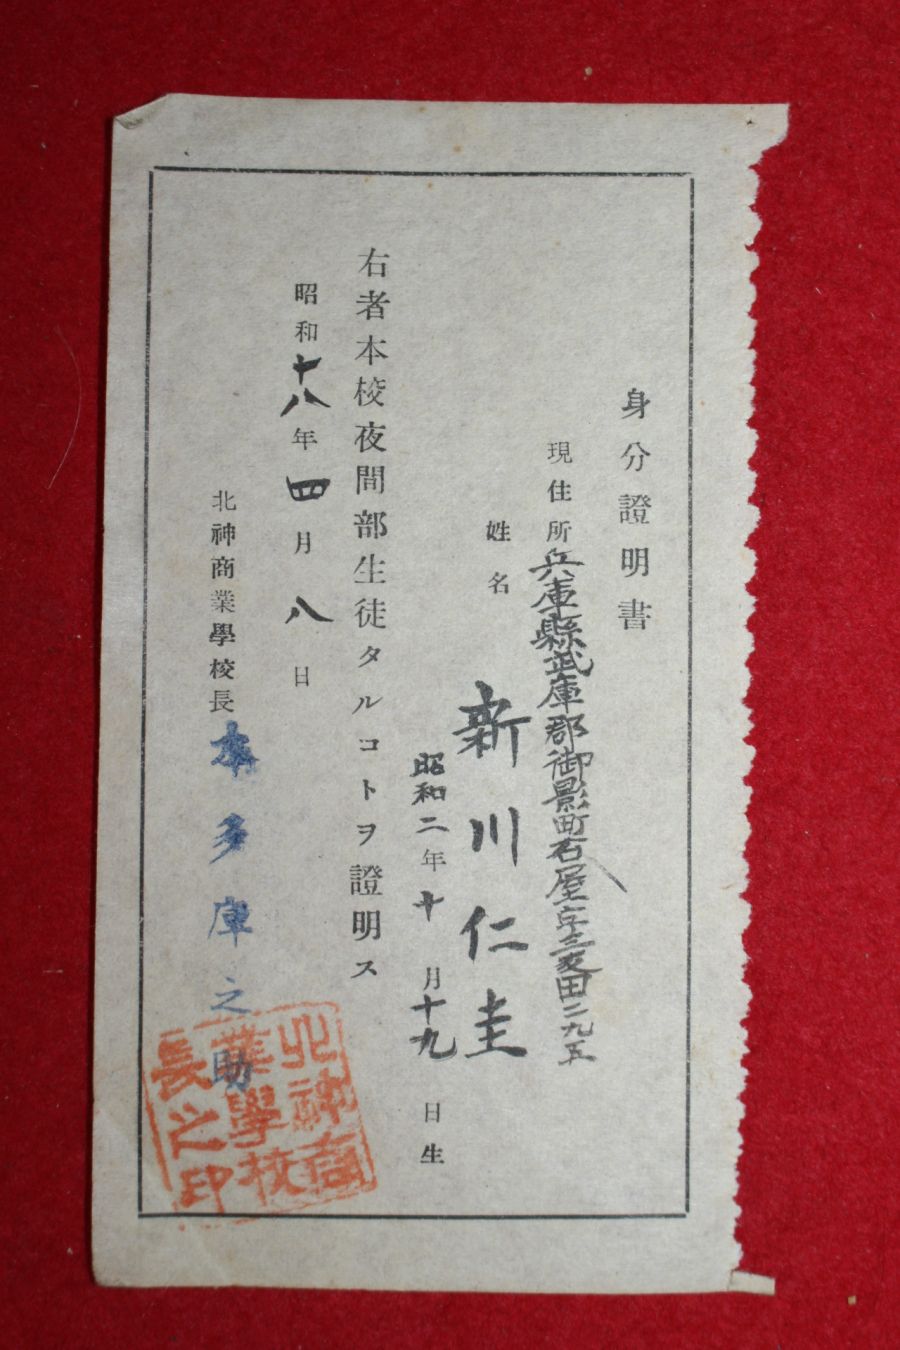 身分證明書
現住所 兵庫縣武庫郡御影町石屋字三反田二九五
姓名 新川仁圭
昭和二年十月十九日生
右者本校夜間部生徒タルコトヲ證明ス
昭和十八年四月八日
北神商業學校長 本多庫之助
北神商業學校長之印